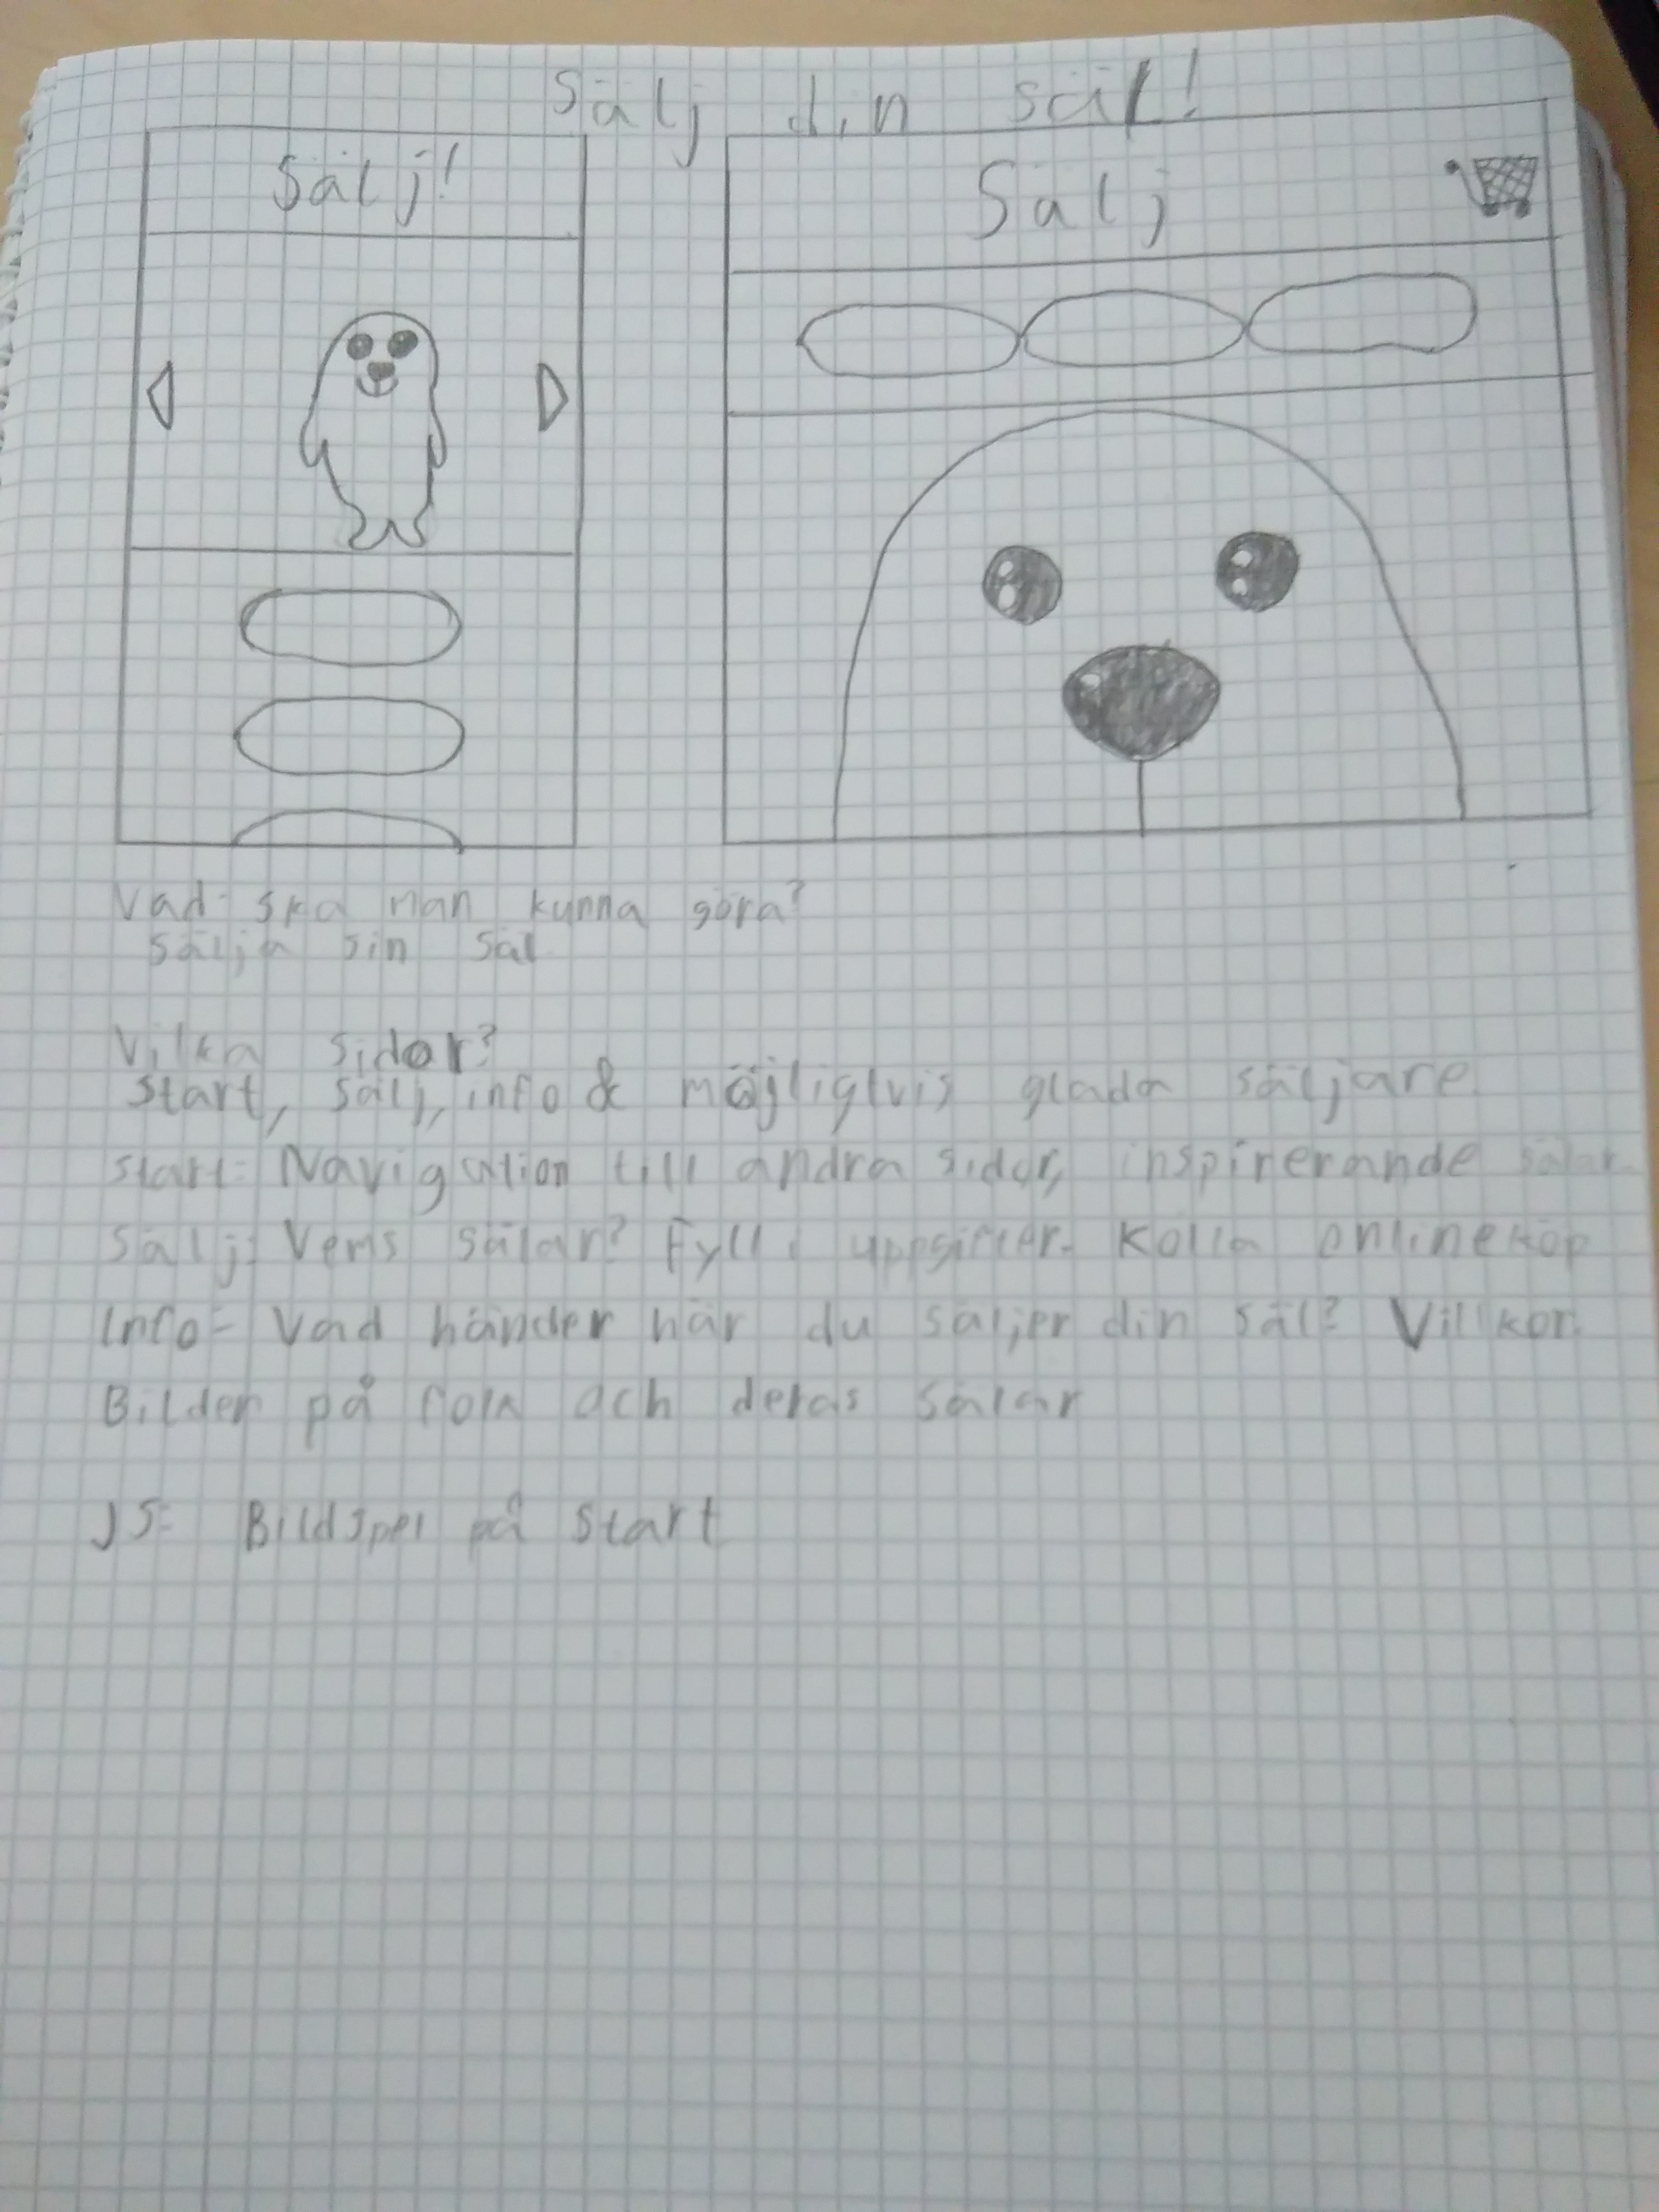 Sälj din säl!
Sälj!
Sälj
Vad ska man kunna göra?
Sälja sin säl
Vilka sidor?
Start, Sälj, info & möjligtvis glada säljare.
Start: Navigation till andra sidor, inspirerande sälar.
Sälj: Vems sälar? Fyll i uppgifter. Kolla onlineköp
Info- Vad händer när du säljer din säl? Villkor.
Bilder på folk och deras sälar
JS: Bildspel på start